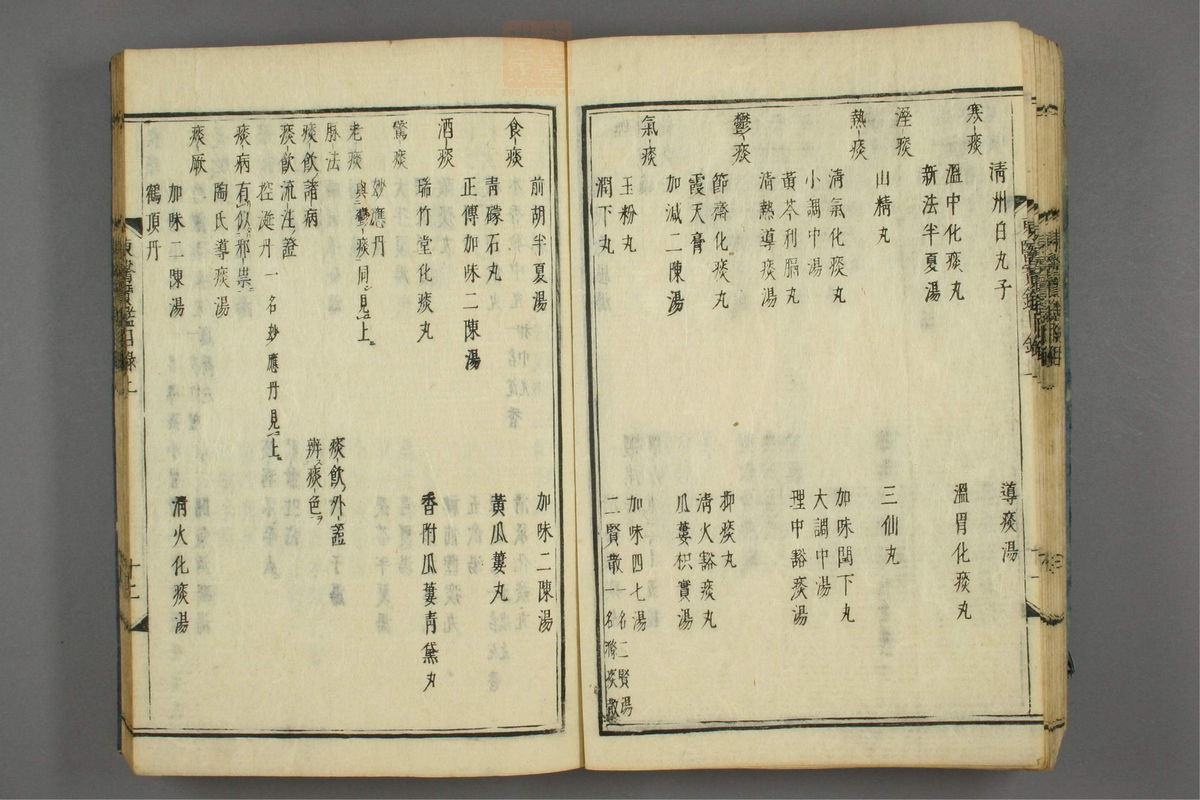 清州白丸子 導痰湯
寒痰
溫中化痰丸 溫胃化痰丸
新法半夏湯
溼痰
山精丸 三仙丸
熱痰
清氣化痰丸 加味閏下丸
小調中湯 大調中湯
黃芩利膈丸 理中豁痰湯
清熱導痰湯
鬱痰
節齊化痰丸 抑痰丸
霞天膏 清火豁痰丸
加減二陳湯 瓜蔞枳實湯
氣痰
玉粉丸 加味四七湯 一名二賢湯
潤下丸 二賢散 一名滌痰散
食痰
前胡半夏湯 加味二陳湯
青礞石丸 黃瓜蔞丸
正傳加味二陳湯
酒痰
瑞竹堂化痰丸 香附瓜蔞青黛丸
驚痰
妙應丹
老痰
與鬱痰同見上
脉法 痰飲外證
痰飲諸病 辨痰色
痰飲流注證
控涎丹 一名妙應丹見上
痰病有似邪祟
陶氏導痰湯
痰厥
加味二陳湯 清火化痰湯
鶴頂丹
東醫寶鑑目錄上 十二